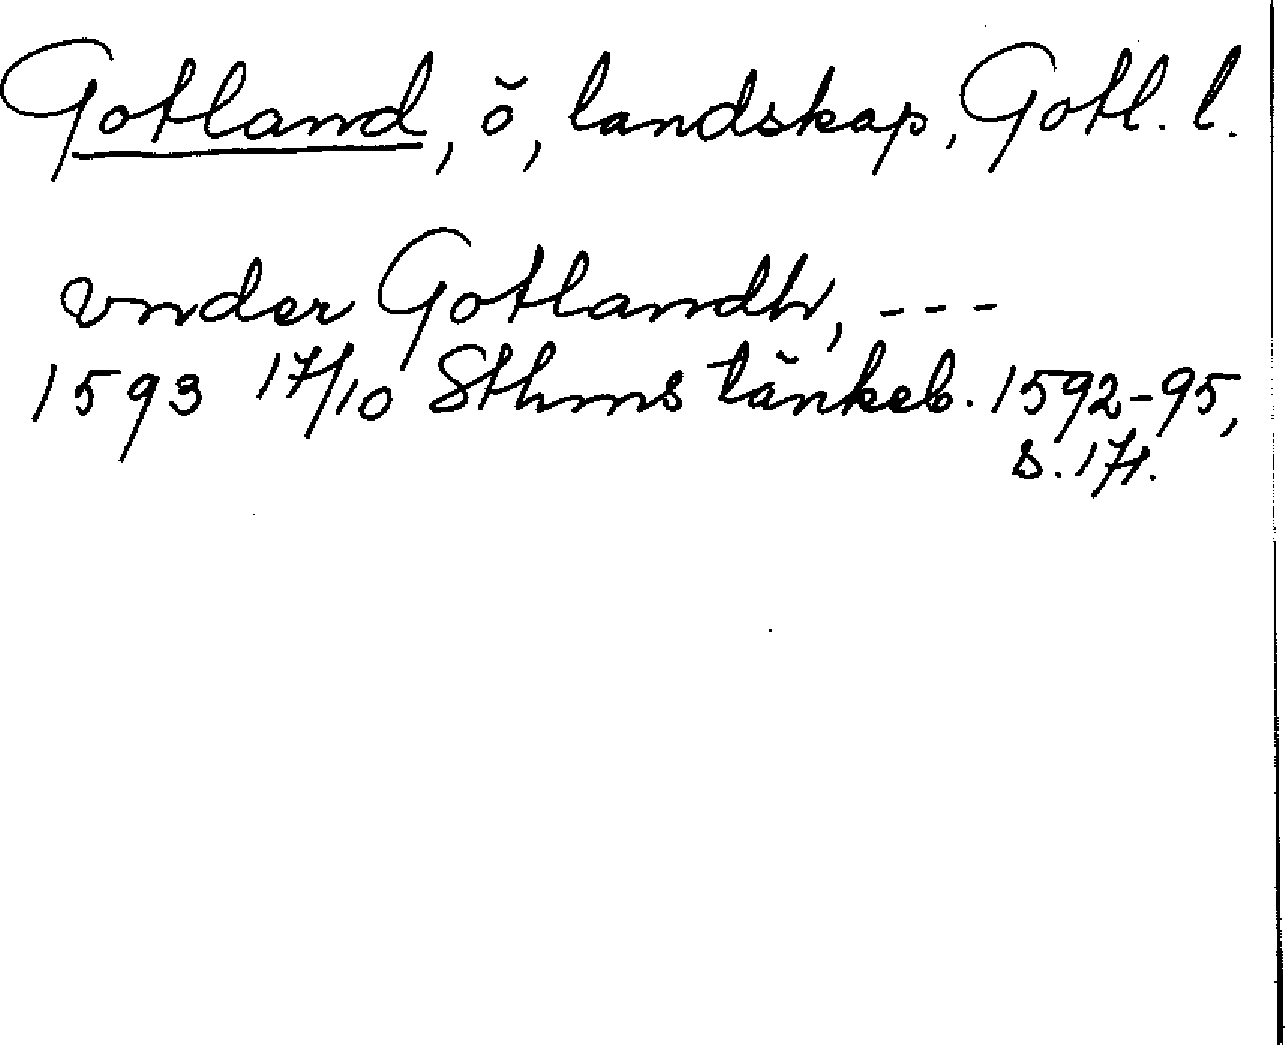 Gotland, ö, landskap, Gotl. l.
vnder Gotlandh, ---
1593 17/10 Sthms tänkeb. 1592-95,
s. 171.